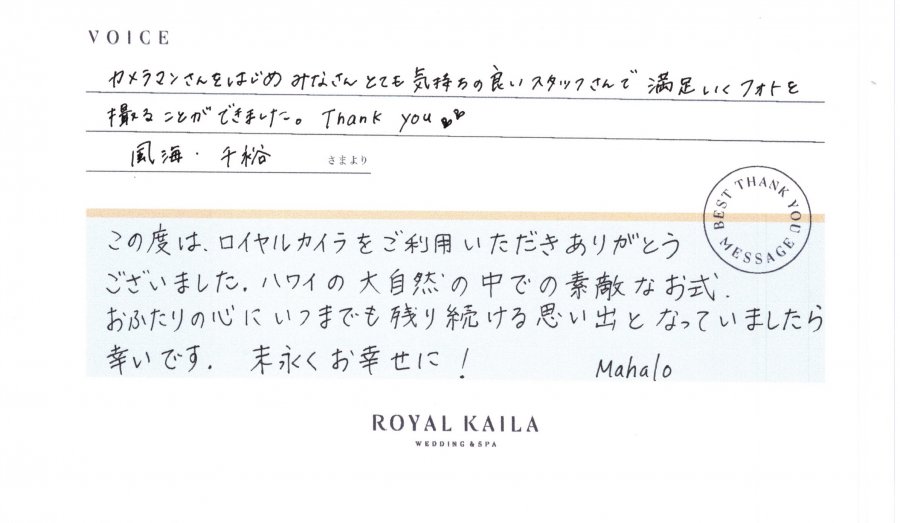 VOICE
カメラマンさんをはじめ みなさん とても 気持ちの良いスタッフさんで 満足いくフォトを
撮ることができました。Thank you
風海・千裕 さまより
BEST THANK YOU MESSAGE
この度は、ロイヤルカイラをご利用いただきありがとう
ございました。ハワイの大自然の中での素敵なお式.
おふたりの心にいつまでも残り続ける思い出となっていましたら
幸いです. 末永くお幸せに! Mahalo
ROYAL KAILA
WEDDING & SPA